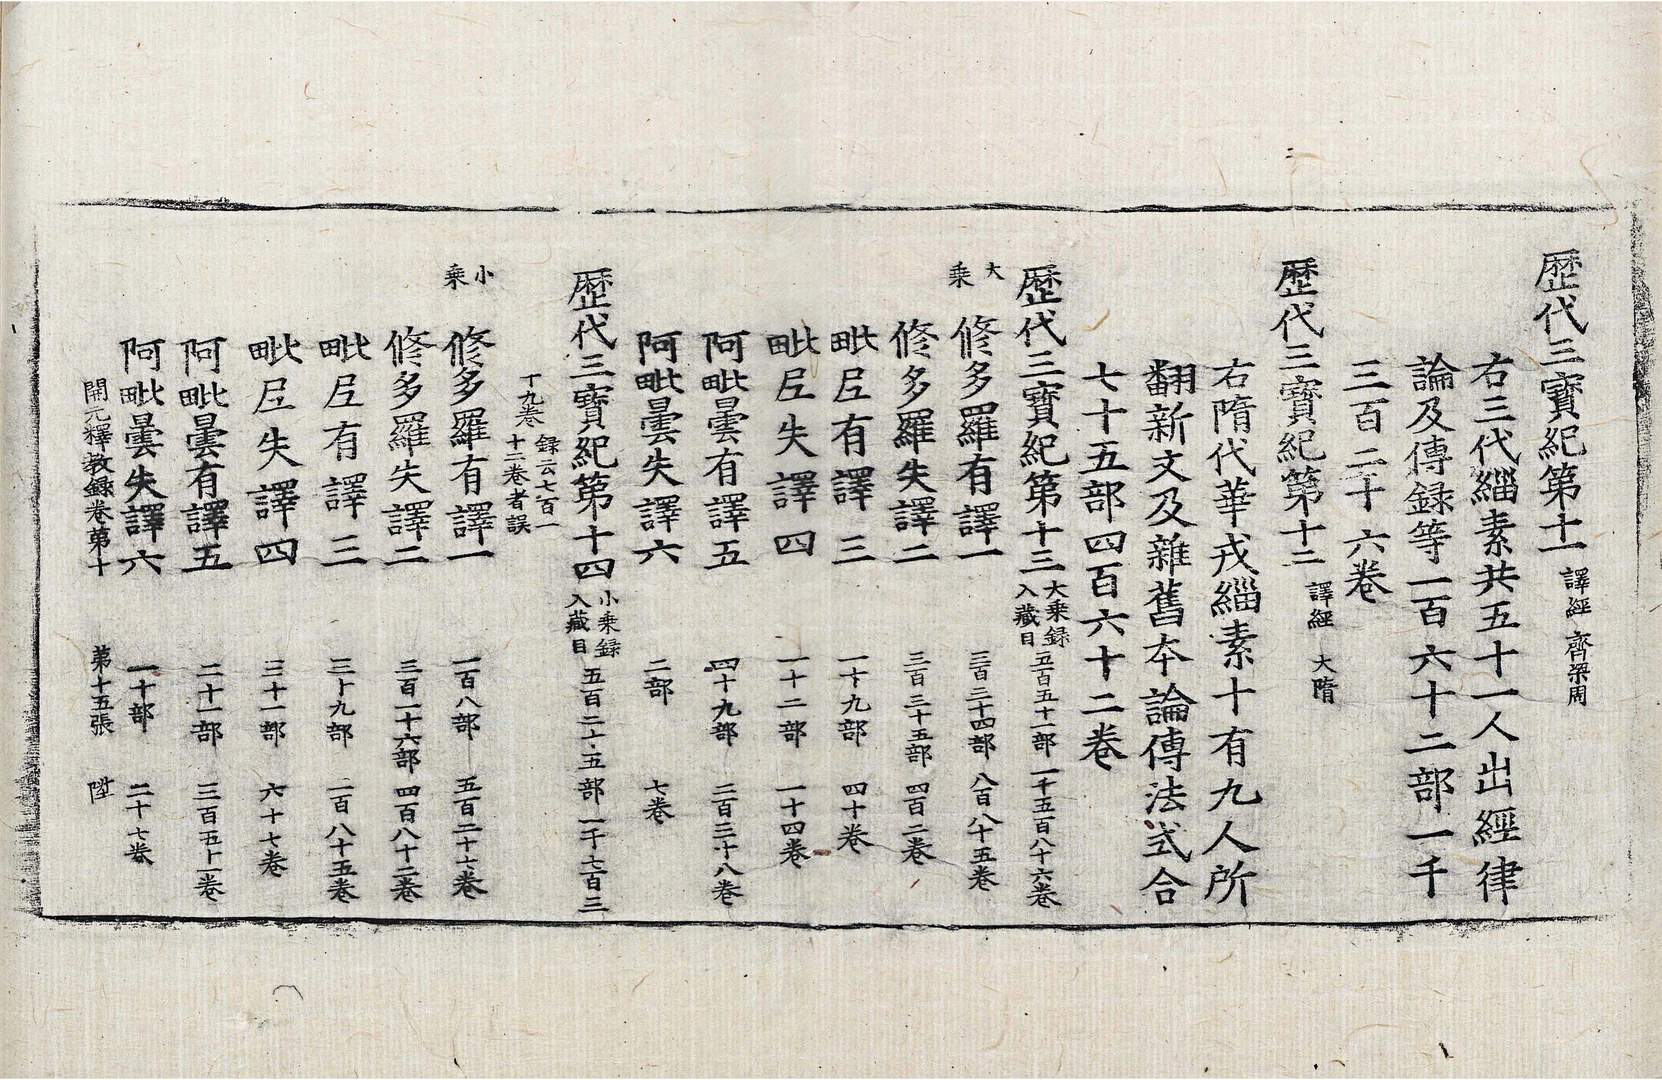 歷代三寶紀第十一 譯經 齊梁周
右三代緇素共五十一人出經律
論及傳録等一百六十二部一千
三百二十六卷
歷代三寶紀第十二 譯經 大隋
右隋代華戎緇素十有九人所
翻新文及雜舊本論傳法式合
七十五部四百六十二卷
歷代三寶紀第十三 大乘録入藏目 五百五十一部 一千五百八十六卷
大乘 修多羅有譯一 三百三十四部 八百八十五卷
修多羅失譯二 三百三十五部 四百二卷
毗尼有譯三 一十九部 四十卷
毗尼失譯四 一十二部 一十四卷
阿毗曇有譯五 四十九部 二百三十八卷
阿毗曇失譯六 二部 七卷
歷代三寶紀第十四 小乘録入藏目 五百二十五部 一千七百三
十九卷 録云七百一十二卷者誤
小乘 修多羅有譯一 一百八部 五百二十七卷
修多羅失譯二 三百一十六部 四百八十二卷
毗尼有譯三 三十九部 二百八十五卷
毗尼失譯四 三十一部 六十七卷
阿毗曇有譯五 二十一部 三百五十一卷
阿毗曇失譯六 一十部 二十七卷
開元釋教録卷第十 第十五張 陞